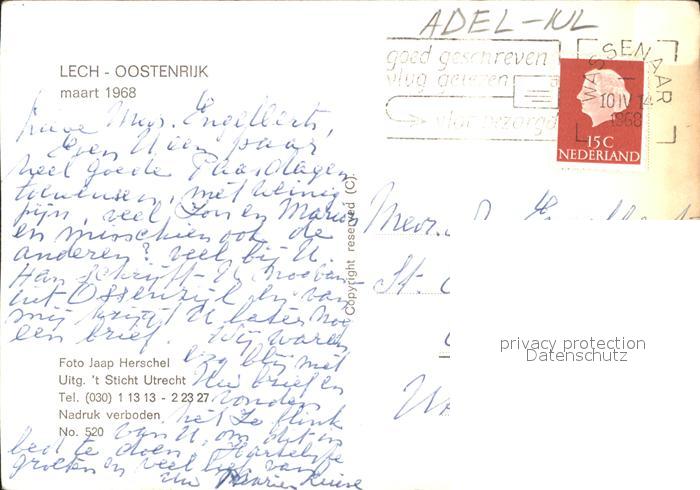 ADEL-IUL
goed geschreven
vlug gelezen
vlot bezorgd
WASSENAAR
10 IV 14
1968
15C
NEDERLAND
LECH - OOSTENRIJK
maart 1968
Lieve Mevr. Engelberts,
Even U een paar
heel goede Paasdagen
toewensen, met weinig
pijn, veel Zon en Marius
en misschien ook de
anderen? veel bij U.
Han schrijft U
uit Ossenzijl en van
mij krijgt U later nog
een brief. Wij waren
erg blij met
Uw brief en
vonden
het zo flink
van U, om dit in
bed te doen. Hartelijke
groeten en veel liefs van
Uw
Copyright reserved (C).
Foto Jaap Herschel
Uitg. 't Sticht Utrecht
Tel. (030) 1 13 13 - 2 23 27
Nadruk verboden
No. 520
Mevr.
St.
privacy protection
Datenschutz